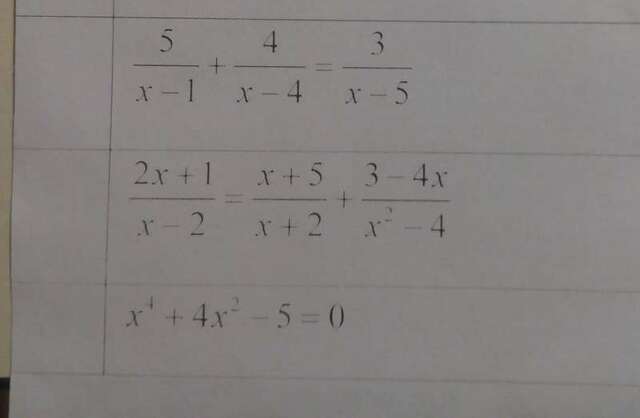 5/(x − 1) + 4/(x − 4) = 3/(x − 5)
(2x + 1)/(x − 2) = (x + 5)/(x + 2) + (3 − 4x)/(x² − 4)
x⁴ + 4x² − 5 = 0